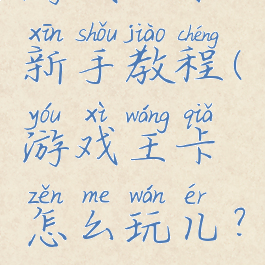 xīn shǒu jiào chéng
新手教程(
yóu xì wáng qiǎ
游戏王卡
zěn me wán ér
怎么玩儿?